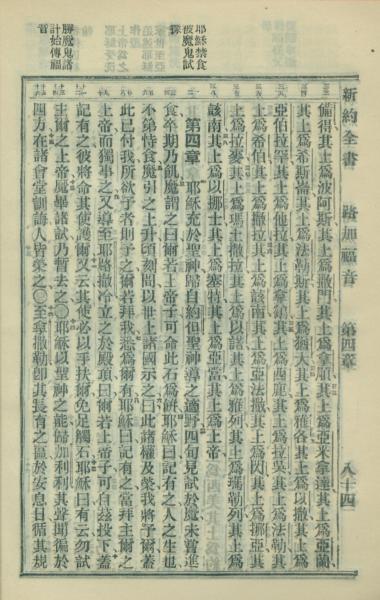 新約全書 路加福音 第四章 八十四
備得其上爲波阿斯其上爲撒門其上爲拿順其上爲亞米拿達其上爲亞蘭
其上爲希斯崙其上爲法勒斯其上爲猶大其上爲雅各其上爲以撒其上爲
亞伯拉罕其上爲他拉其上爲拿鶴其上爲西鹿其上爲拉吳其上爲法勒其
上爲希伯其上爲撒拉其上爲該南其上爲亞法撒其上爲閃其上爲挪亞其
上爲拉麥其上爲瑪土撒拉其上爲以諾其上爲雅列其上爲瑪勒列其上爲
該南其上爲以挪士其上爲塞特其上爲亞當其上爲上帝
第四章 耶穌充於聖神歸自約但聖神導之適野四旬見試於魔未嘗進
食卒期乃飢魔謂之曰爾若上帝子可命此石爲餅耶穌曰記有之人之生也
不第恃食魔引之上升頃刻間以世上諸國示之曰此諸權及榮我將予爾蓋
此已付我所欲予者則予之爾若拜我悉爲爾有耶穌曰記有之當拜主爾之
上帝而獨事之又導至耶路撒冷立之於殿頂曰爾若上帝子可自茲投下蓋
記有之彼將命其使護爾又云其使必以手扶爾免足觸石耶穌曰有云勿試
主爾之上帝魔畢諸試乃暫去之〇耶穌以聖神之能歸加利利其聲聞徧於
四方在諸會堂訓誨人皆榮之〇至拿撒勒卽其長育之區於安息日循其規
耶穌禁食
被魔鬼試
探
勝魔鬼諸
計始傳福
音